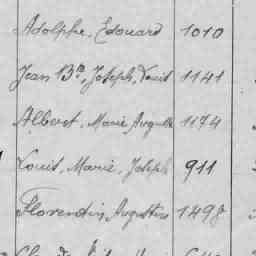 Adolphe, Edouard 1010
Jean Bte, Joseph, Louis 1141
Albert, Marie, Auguste 1174
Louis, Marie, Joseph 911
Florentin, Augustin 1498